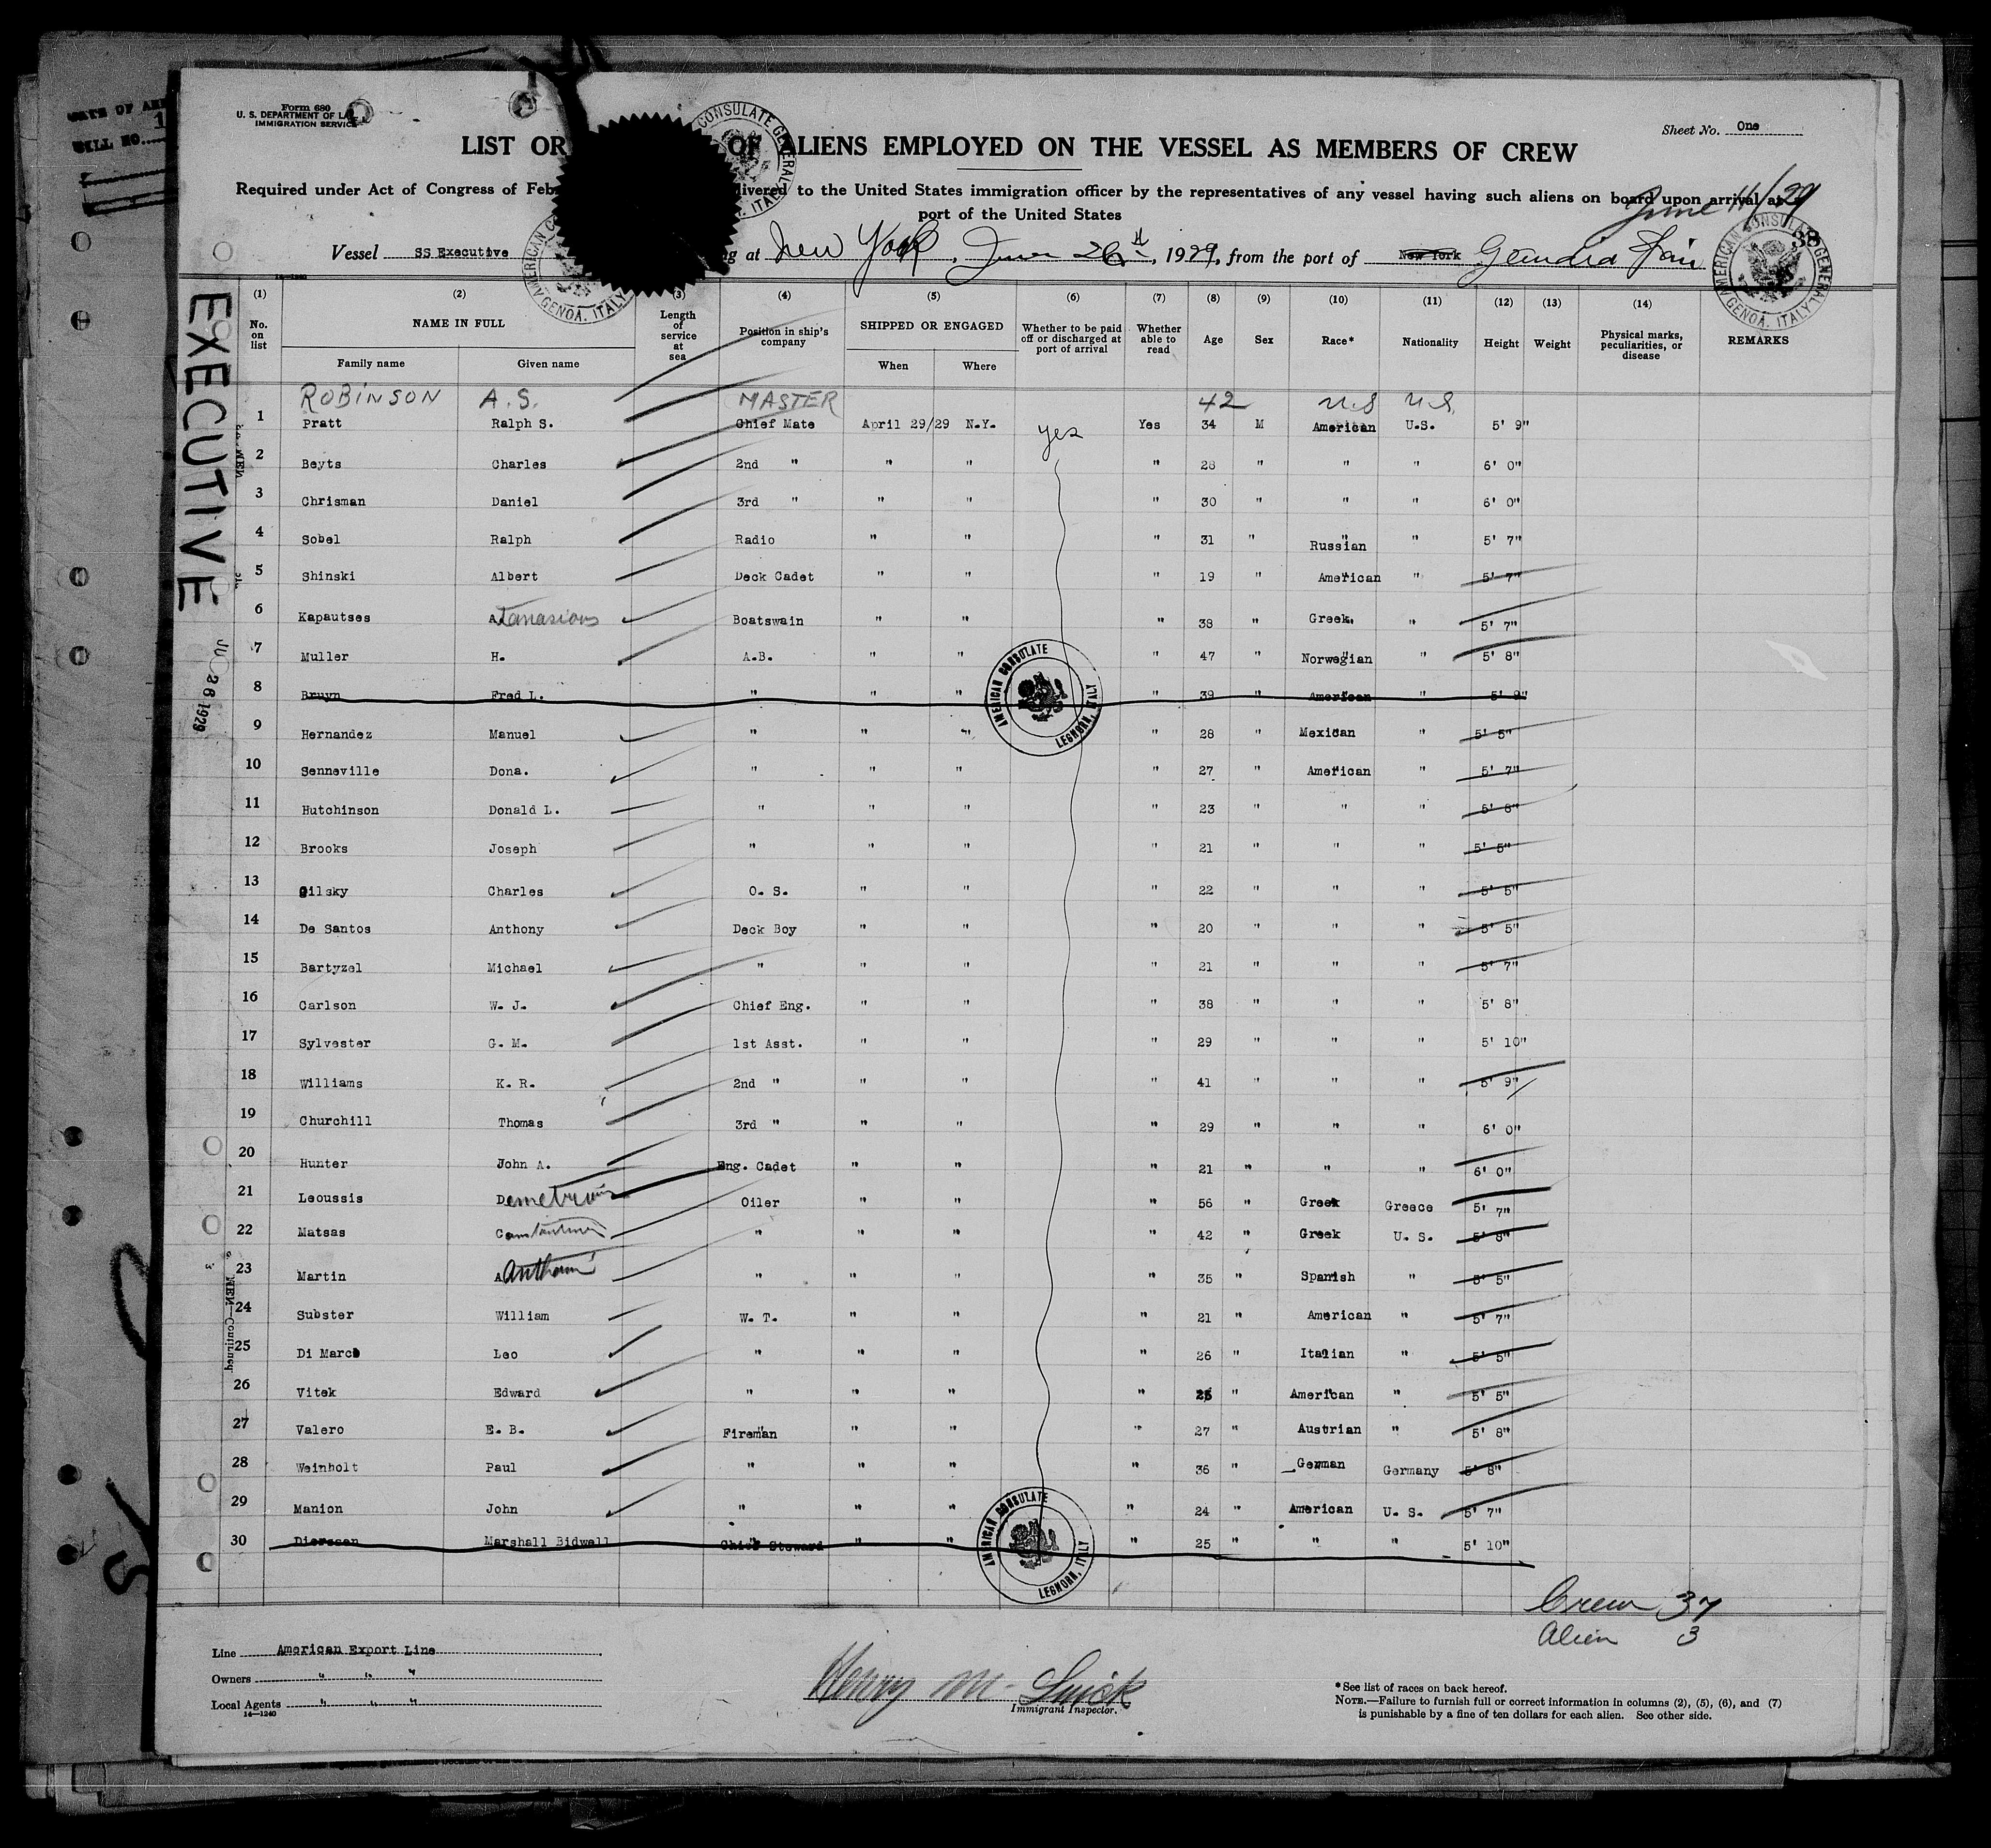 Form 680
U. S. DEPARTMENT OF LA
IMMIGRATION SERVICE
Sheet No. One
LIST OR OF ALIENS EMPLOYED ON THE VESSEL AS MEMBERS OF CREW
Required under Act of Congress of Feb livered to the United States immigration officer by the representatives of any vessel having such aliens on board upon arrival at
port of the United States
June 11/29
38
Vessel SS Executive g at New York, June 26th, 1929, from the port of New York
AMERICAN CONSULATE GENERAL GENOA, ITALY
EXECUTIVE
JU 26 1929
(1) (2) (3) (4) (5) (6) (7) (8) (9) (10) (11) (12) (13) (14)
No. on list NAME IN FULL Length of service at sea Position in ship's company SHIPPED OR ENGAGED Whether to be paid off or discharged at port of arrival Whether able to read Age Sex Race* Nationality Height Weight Physical marks, peculiarities, or disease REMARKS
Family name Given name When Where
ROBINSON A. S. MASTER 42 U.S U.S.
1 Pratt Ralph S. Chief Mate April 29/29 N.Y. yes Yes 34 M American U.S. 5' 9"
2 Beyts Charles 2nd " " " " 28 " " " 6' 0"
3 Chrisman Daniel 3rd " " " " 30 " " " 6' 0"
4 Sobel Ralph Radio " " " 31 " Russian " 5' 7"
5 Shinski Albert Deck Cadet " " " 19 " American " 5' 7"
6 Kapautses Atanasious Boatswain " " " 38 " Greek " 5' 7"
7 Muller H. A.B. " " " 47 " Norwegian " 5' 8"
8 Bruyn Fred L. " " " " 39 " American " 5' 9"
9 Hernandez Manuel " " " " 28 " Mexican " 5' 5"
10 Senneville Dona. " " " " 27 " American " 5' 7"
11 Hutchinson Donald L. " " " " 23 " " " 5' 8"
12 Brooks Joseph " " " " 21 " " " 5' 5"
13 Gilsky Charles O. S. " " " 22 " " " 5' 5"
14 De Santos Anthony Deck Boy " " " 20 " " " 5' 5"
15 Bartyzel Michael " " " " 21 " " " 5' 7"
16 Carlson W. J. Chief Eng. " " " 38 " " " 5' 8"
17 Sylvester G. M. 1st Asst. " " " 29 " " " 5' 10"
18 Williams K. R. 2nd " " " " 41 " " " 5' 9"
19 Churchill Thomas 3rd " " " " 29 " " " 6' 0"
20 Hunter John A. Eng. Cadet " " " 21 " " " 6' 0"
21 Leoussis Demetrius Oiler " " " 56 " Greek Greece 5' 7"
22 Matsas Constantine " " " " 42 " Greek U. S. 5' 8"
23 Martin A " " " " 35 " Spanish " 5' 5"
24 Subster William W. T. " " " 21 " American " 5' 7"
25 Di Marco Leo " " " " 26 " Italian " 5' 5"
26 Vitek Edward " " " " " American " 5' 5"
27 Valero E. B. Fireman " " " 27 " Austrian " 5' 8"
28 Weinholt Paul " " " " 36 " German Germany 5' 8"
29 Manion John " " " " 24 " American U. S. 5' 7"
30 Dierssen Marshall Bidwell Chief Steward " " " 25 " " " 5' 10"
AMERICAN CONSULATE LEGHORN, ITALY
AMERICAN CONSULATE LEGHORN, ITALY
MEN—Continued
Crew 37
Alien 3
Line American Export Line
Owners " " "
Local Agents " " "
14—1240
Immigrant Inspector.
*See list of races on back hereof.
NOTE.—Failure to furnish full or correct information in columns (2), (5), (6), and (7)
is punishable by a fine of ten dollars for each alien. See other side.